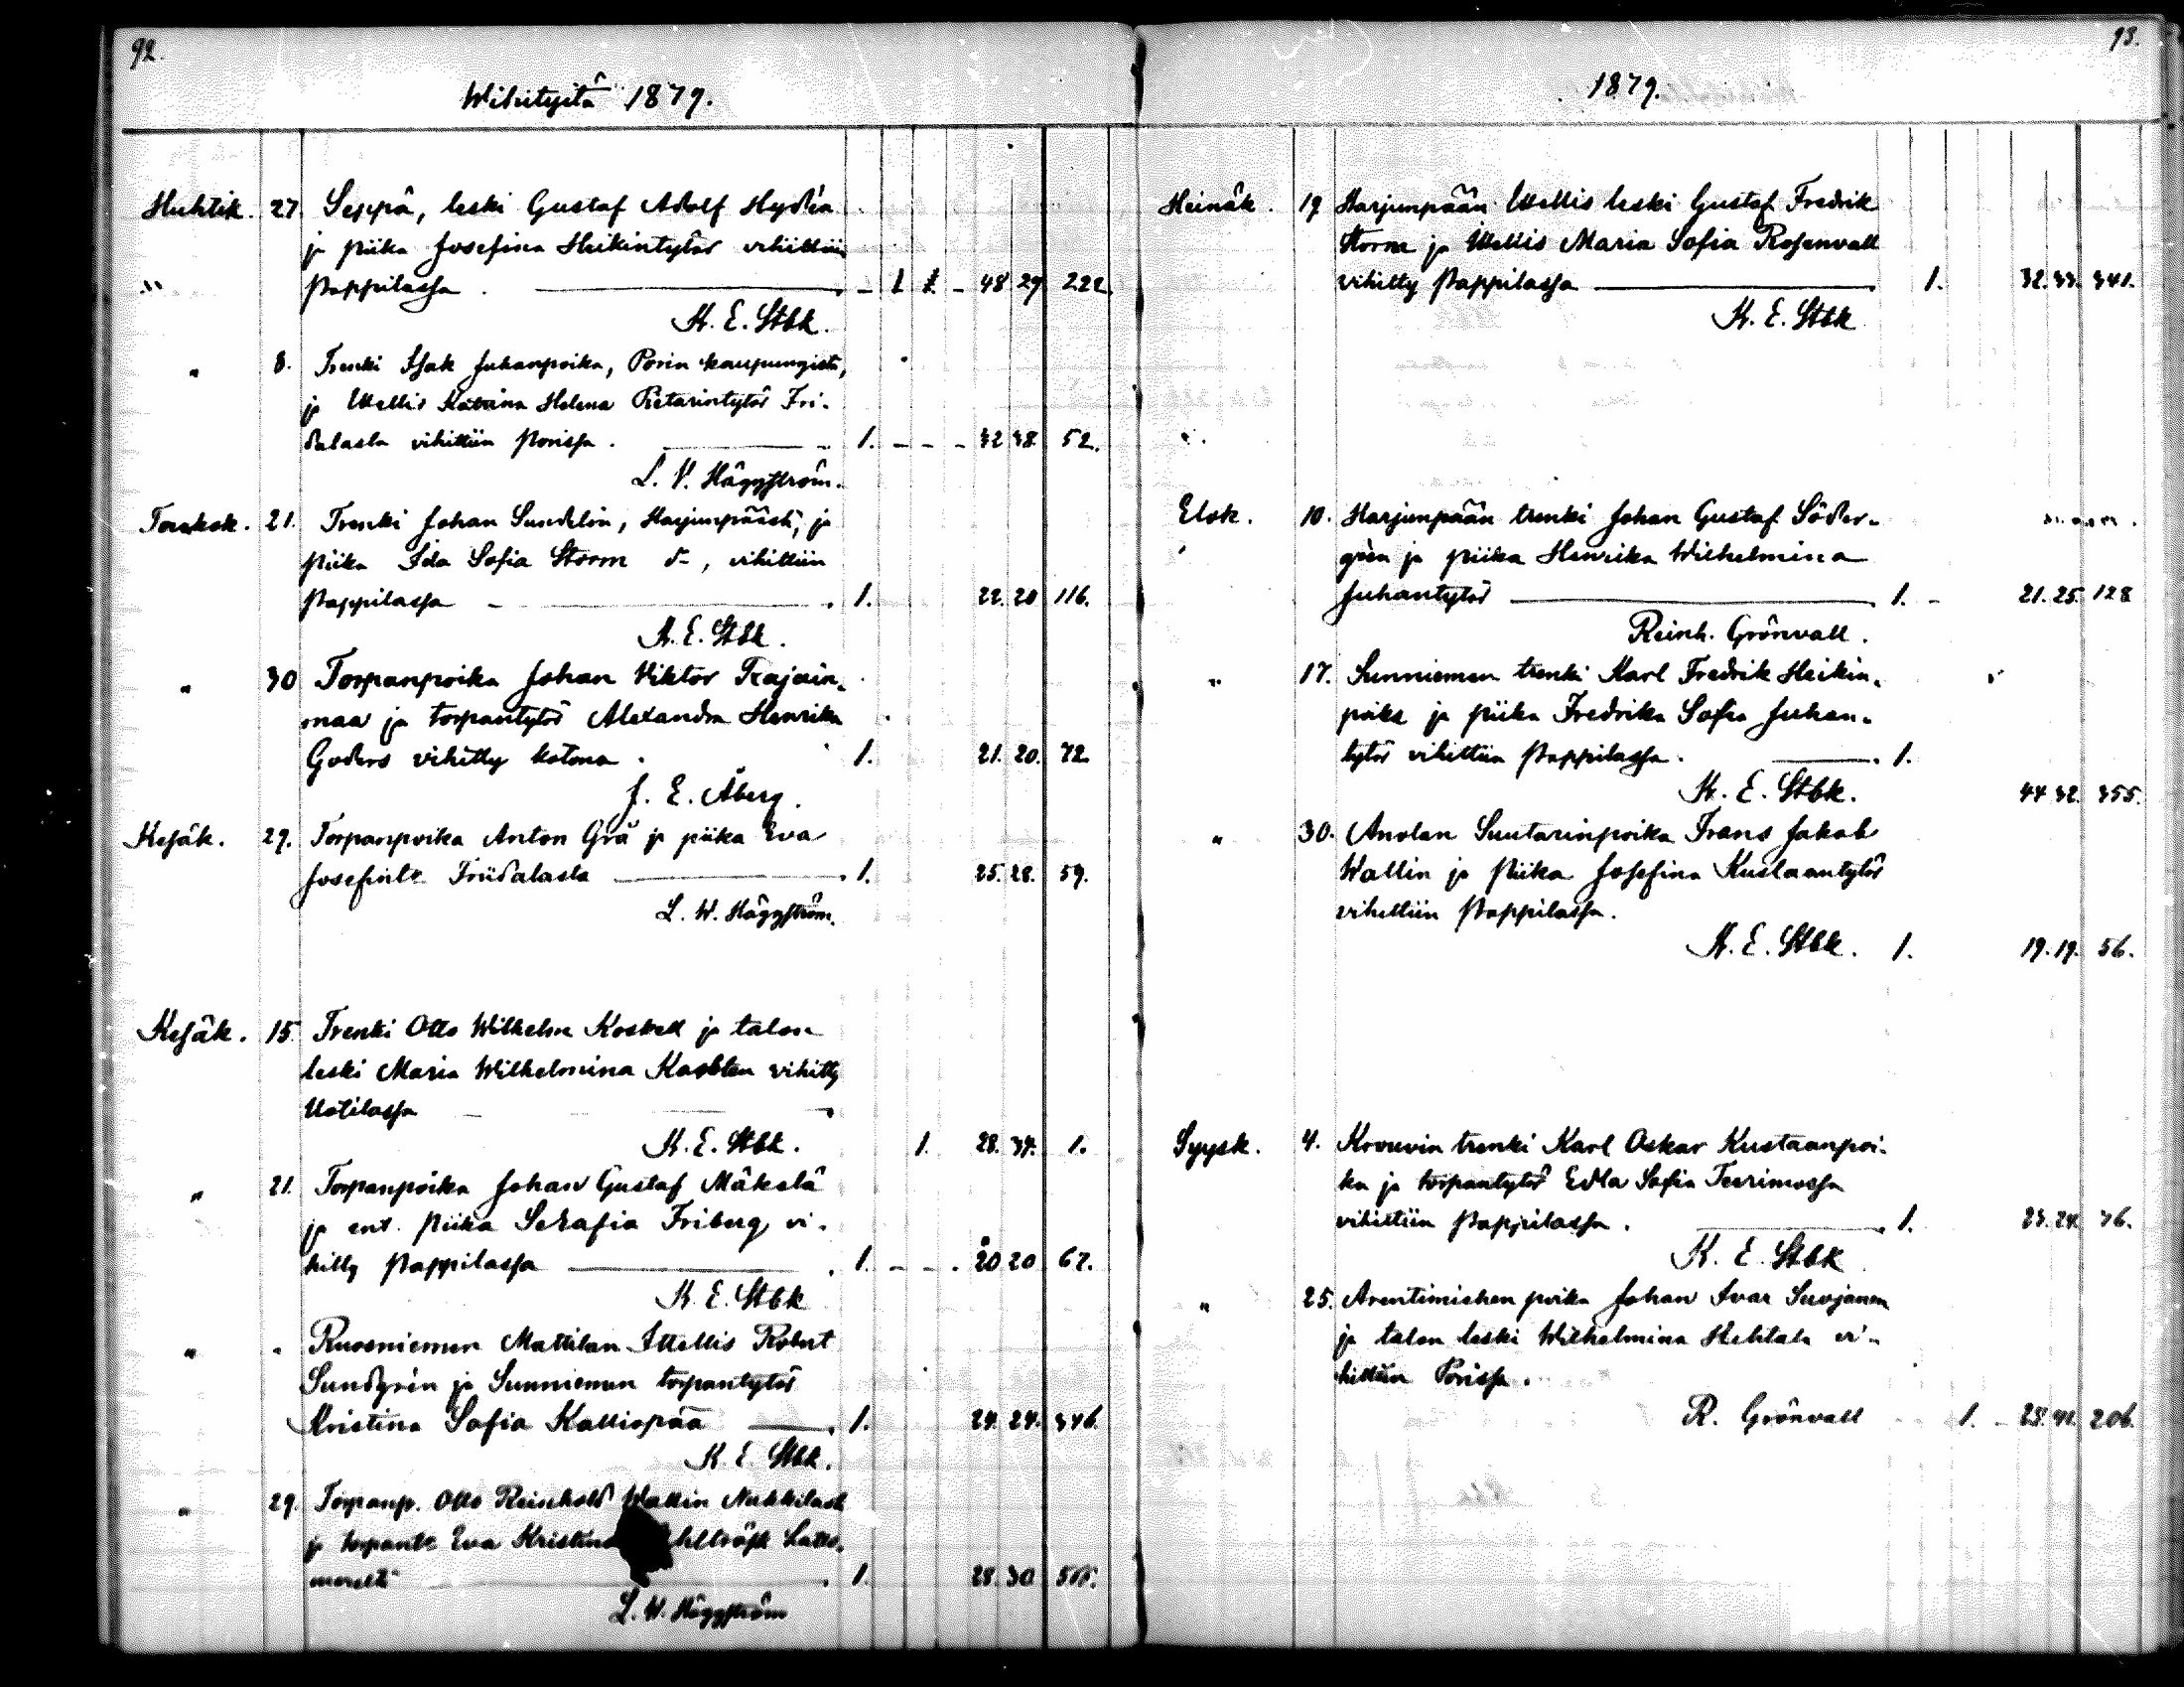 92.
Wihityitä 1879.
Huhtik. 27 Seppä, leski Gustaf Adolf Hydén
ja piika Josefina Heikintytär vihittiin
" Pappilassa. - 1 1. - 48 29 222.
K. E. Stbk.
" 8. Trenki Isak Juhanpoika, Porin kaupungista,
ja Itellis Katrina Helena Pietarintytär Fri-
dalasta vihittiin Porissa. 1. - - - 32 38 52.
L. V. Häggström.
Toukok. 21. Trenki Johan Sundelin, Harjunpäästä, ja
piika Ida Sofia Storm d-, vihittiin
Pappilassa 1. 22. 20 116.
K. E. Stbk.
" 30 Torpanpoika Johan Viktor Trajain-
maa ja torpantytär Alexandra Henrika
Goders vihitty kotona. 1. 21. 20. 72.
J. E. Åberg.
Kesäk. 29. Torpanpoika Anton Grå ja piika Eva
Josefintr Friidalasta 1. 25. 28. 59.
L. W. Häggström.
Kesäk. 15. Trenki Otto Wilhelm Koskell ja talon
leski Maria Wilhelmina vihitty
Uotilassa
K. E. Stbk. 1. 28. 34. 1.
" 21. Torpanpoika Johan Gustaf Mäkelä
ja ent. piika Serafia Friberg vi-
hitty Pappilassa 1. - - - 20 20 67.
K. E. Stbk
" " Ruosniemen Mattilan Itellis Robert
Sundgrén ja Sunniemen torpantytär
Kristina Sofia Kalliopää 1. 24. 24. 346.
K. E. Stbk.
" 29. Torpanp. Otto Reinhold Wallin
ja torpantr Eva Kristina Latto-
mereltä 1. 28. 30
L. W. Häggström
93.
1879.
Heinäk. 19 Harjunpään Itellis leski Gustaf Fredrik
Storm ja Itellis Maria Sofia Rosenvall
vihitty Pappilassa 1. 32. 33. 341.
K. E. Stbk
Elok. 10. Harjunpään trenki Johan Gustaf Söder-
grén ja piika Henrika Wilhelmina
Juhantytär 1. - 21. 25. 128
Reinh. Grönvall.
" 17. Sunniemen trenki Karl Fredrik Heikin-
poika ja piika Fredrika Sofia Juhan-
tytär vihittiin Pappilassa. 1.
K. E. Stbk. 44 32. 355.
" 30. Anolan Suutarinpoika Frans Jakob
Wallin ja Piika Josefina Kustaantytär
vihittiin Pappilassa.
K. E. Stbk. 1. 19. 19. 56.
Syysk. 4. Krouvin trenki Karl Oskar Kustaanpoi-
ka ja torpantytär Edla Sofia Teerimossa
vihittiin Pappilassa. 1. 23. 24. 36.
K. E. Stbk
" 25. Arentimiehen poika Johan Ivar Suojanen
ja talon leski Wilhelmina Hehlala vi-
hittiin Porissa.
R. Grönvall 1. - 28. 41. 206.